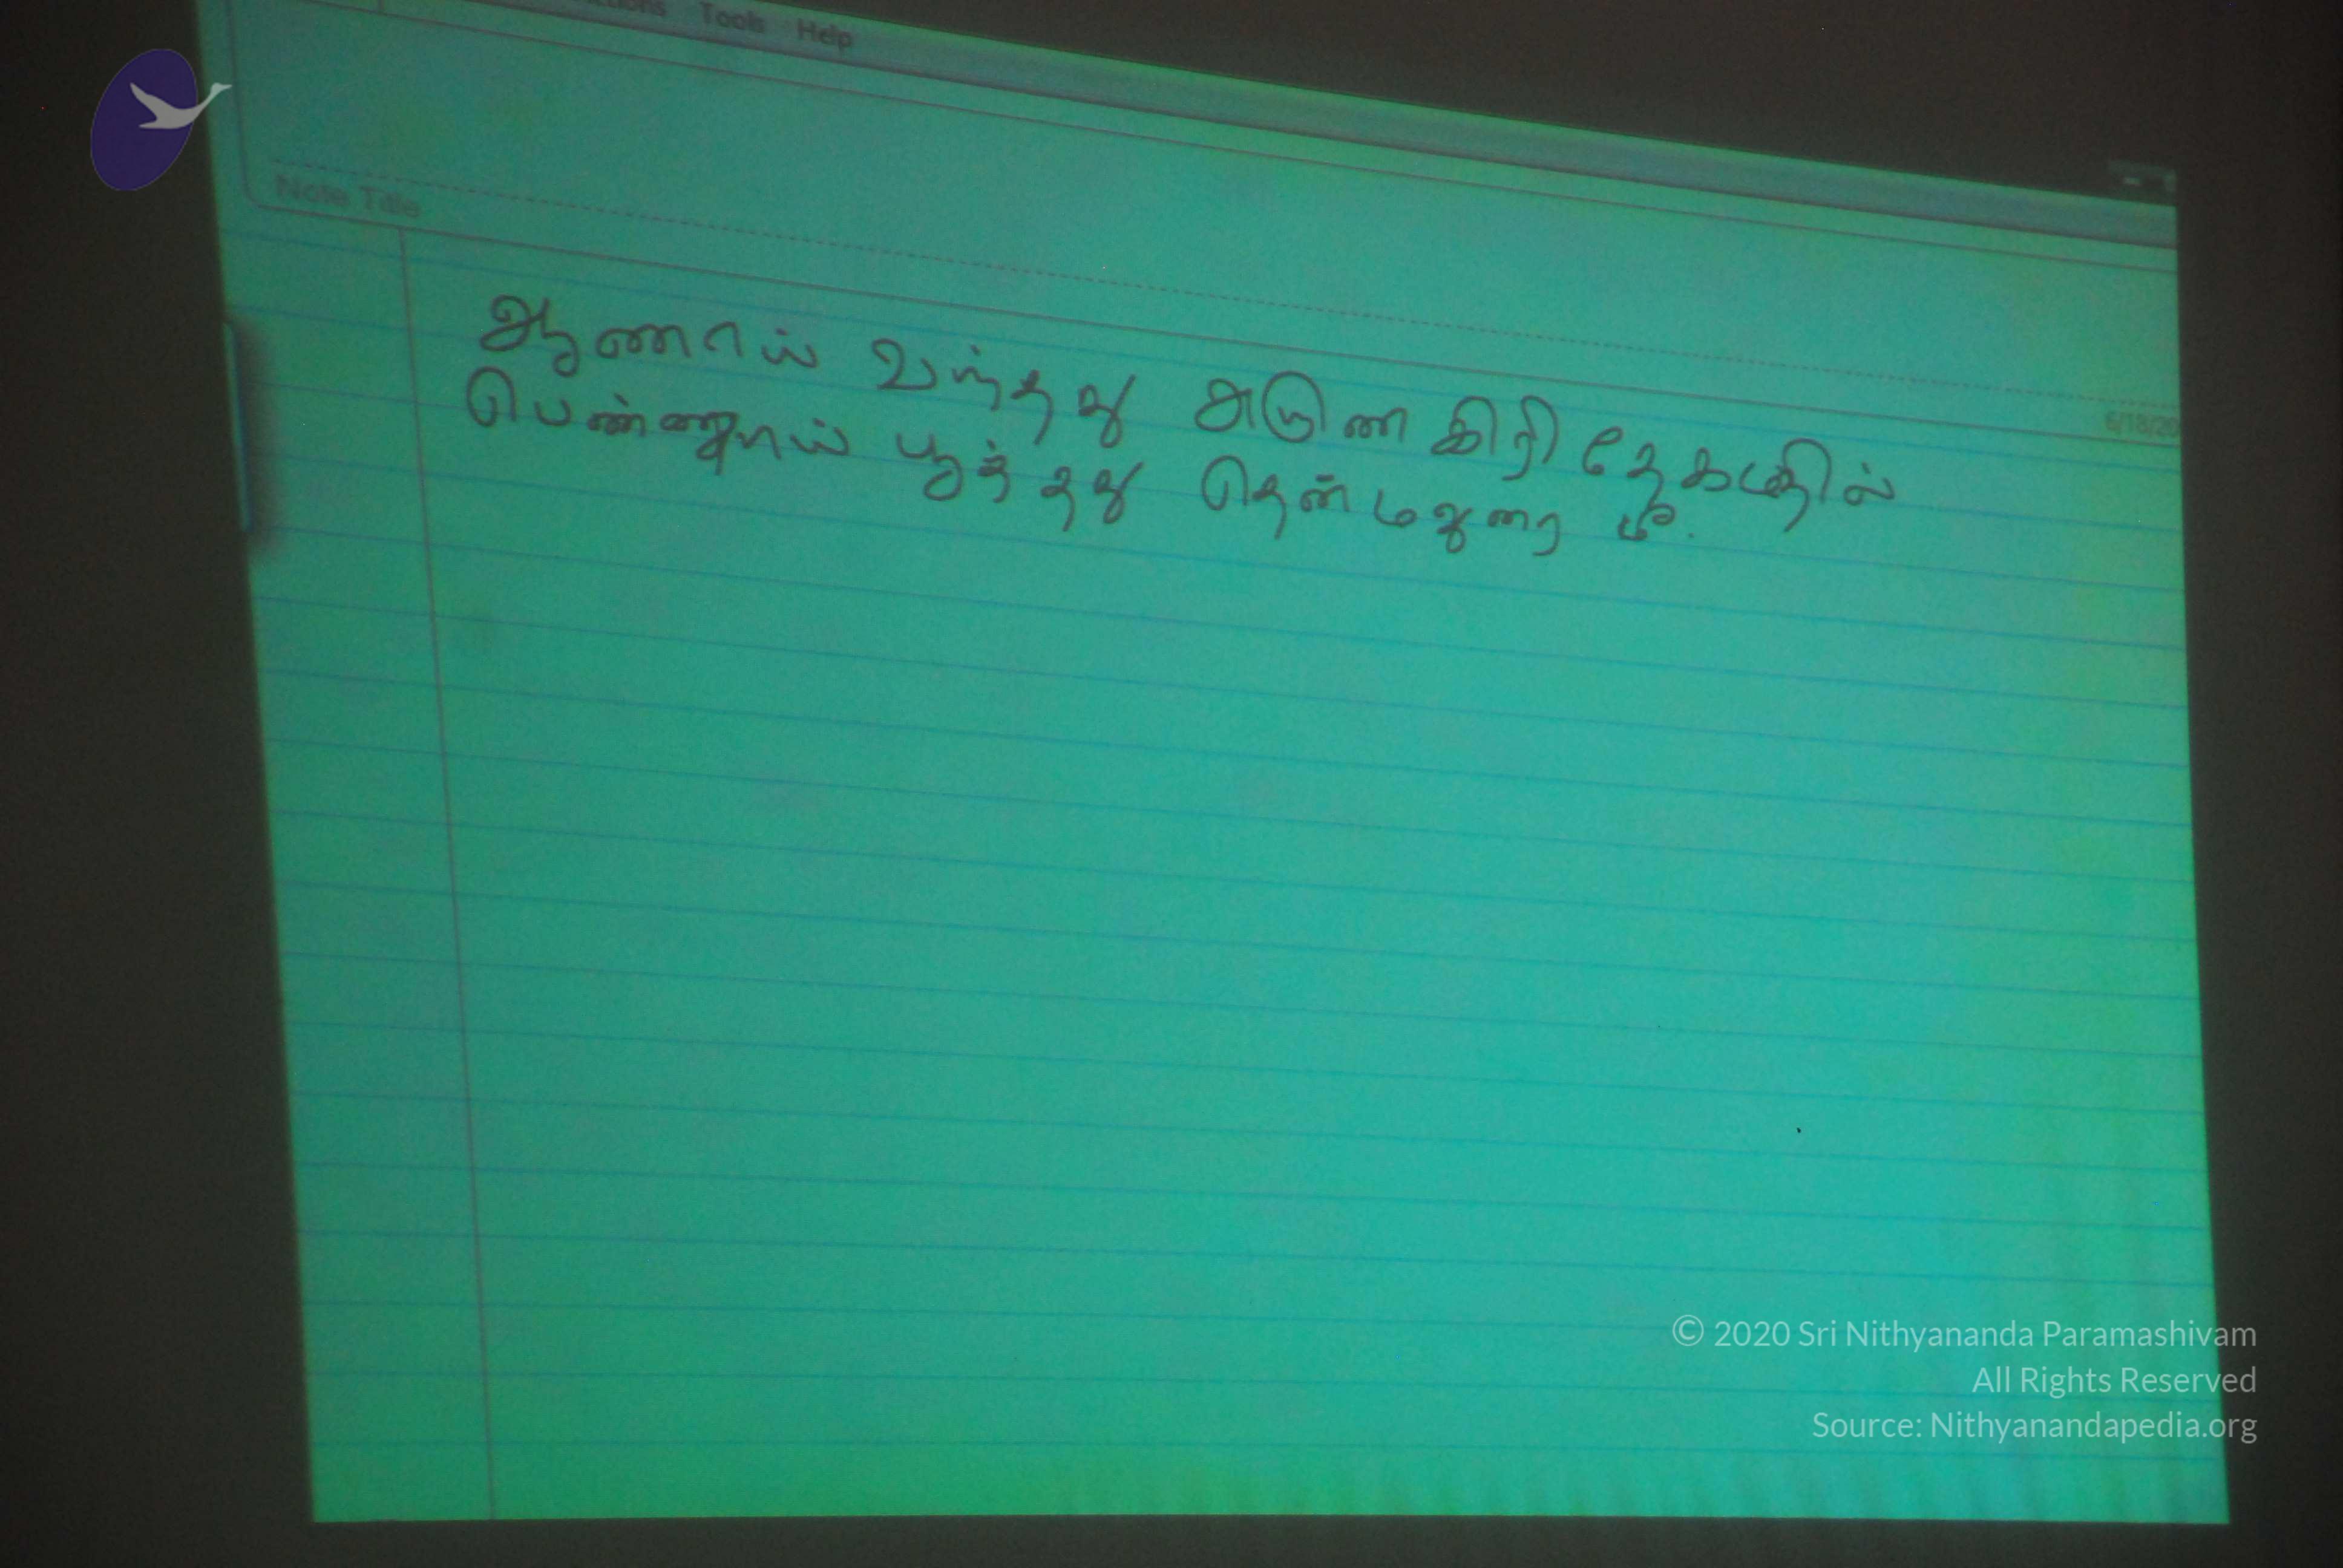 Tools Help
Note Title
6/18/20
ஆணாய் வந்தது அருண கிரி தேகமதில்
பெண்ணாய் பூத்தது தென் மதுரை மீ.
© 2020 Sri Nithyananda Paramashivam
All Rights Reserved
Source: Nithyanandapedia.org